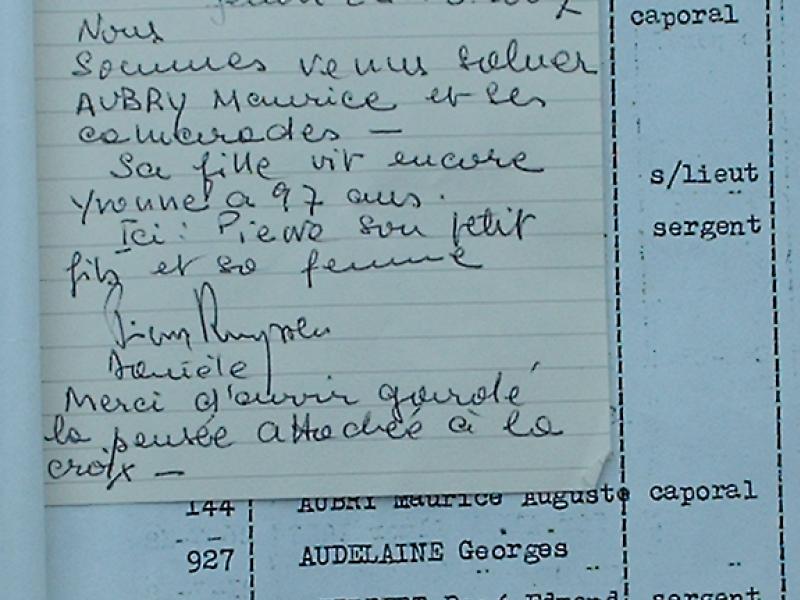 caporal
Nous
Sommes venus saluer
AUBRY Maurice et ses
camarades —
Sa fille vit encore
Yvonne a 97 ans.
Ici : Pierre son petit
fils et sa femme
Danièle
Merci d'avoir gardé
la pensée attachée à la
croix —
s/lieut
sergent
144 AUBRY Maurice Auguste caporal
927 AUDELAINE Georges
sergent